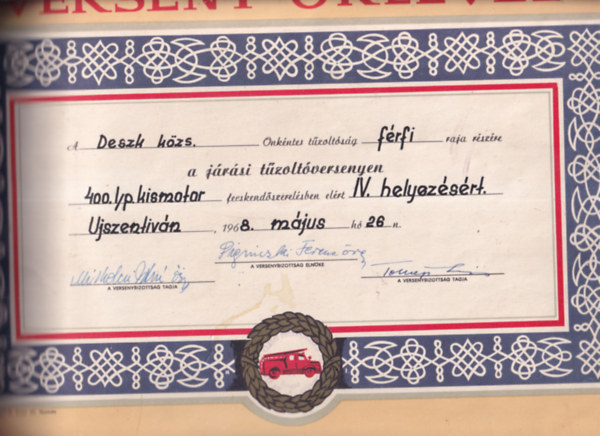 VERSENY OKLEVÉL
A Deszk közs. Önkéntes tűzoltóság férfi raja részére
a járási tűzoltóversenyen
400.l/p kismotor fecskendőszerelésben elért IV. helyezésért.
Ujszentiván, 1968. május hó 26 n.
Ferenc őrg
A VERSENYBIZOTTSÁG ELNÖKE
A VERSENYBIZOTTSÁG TAGJA
A VERSENYBIZOTTSÁG TAGJA